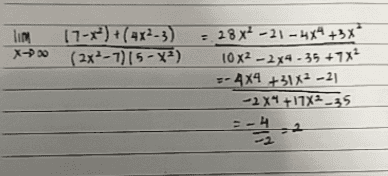 lim x→∞ (7-x²)+(4x²-3) / (2x²-7)(5-x²) = 28x² -21 -4x⁴ +3x² / 10x² -2x4 -35 +7x²
= -4x4 +31x² -21 / -2x4 +17x² -35
= -4 / -2 = 2